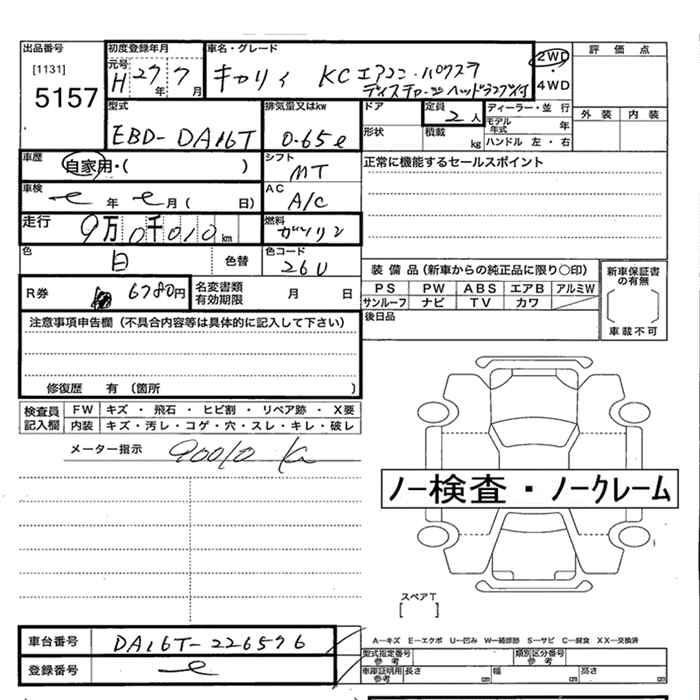 出品番号
[1131]
5157
初度登録年月
元号 H 27年 7月
車名・グレード
キャリイ KCエアコン・パワステ
ディスチャージヘッドランプ付
2WD
・
4WD
評価点
外装 内装
型式
EBD-DA16T
排気量又はkw
0.65ℓ
ドア
形状
定員 2人
積載 kg
ディーラー・並行
モデル年式 年
ハンドル 左・右
車歴
自家用・( )
シフト
MT
正常に機能するセールスポイント
車検
年 月( 日)
AC
A/C
走行
9万0千010km
燃料
ガソリン
色
白
色替
色コード
26U
R券
6780円
名変書類有効期限 月 日
装備品(新車からの純正品に限り〇印)
PS PW ABS エアB アルミW
サンルーフ ナビ TV カワ
後日品
新車保証書の有無
車載不可
注意事項申告欄(不具合内容等は具体的に記入して下さい)
修復歴 有(箇所 )
検査員記入欄
FW キズ・飛石・ヒビ割・リペア跡・X要
内装 キズ・汚レ・コゲ・穴・スレ・キレ・破レ
メーター指示 90010 Km
ノー検査・ノークレーム
スペアT
[ ]
車台番号 DA16T-226576
登録番号
A…キズ E…エクボ U…凹み W…補修跡 S…サビ C…腐食 XX…交換済
型式指定番号 参考
類別区分番号 参考
車庫証明用 参考
長さ cm 幅 cm 高さ cm